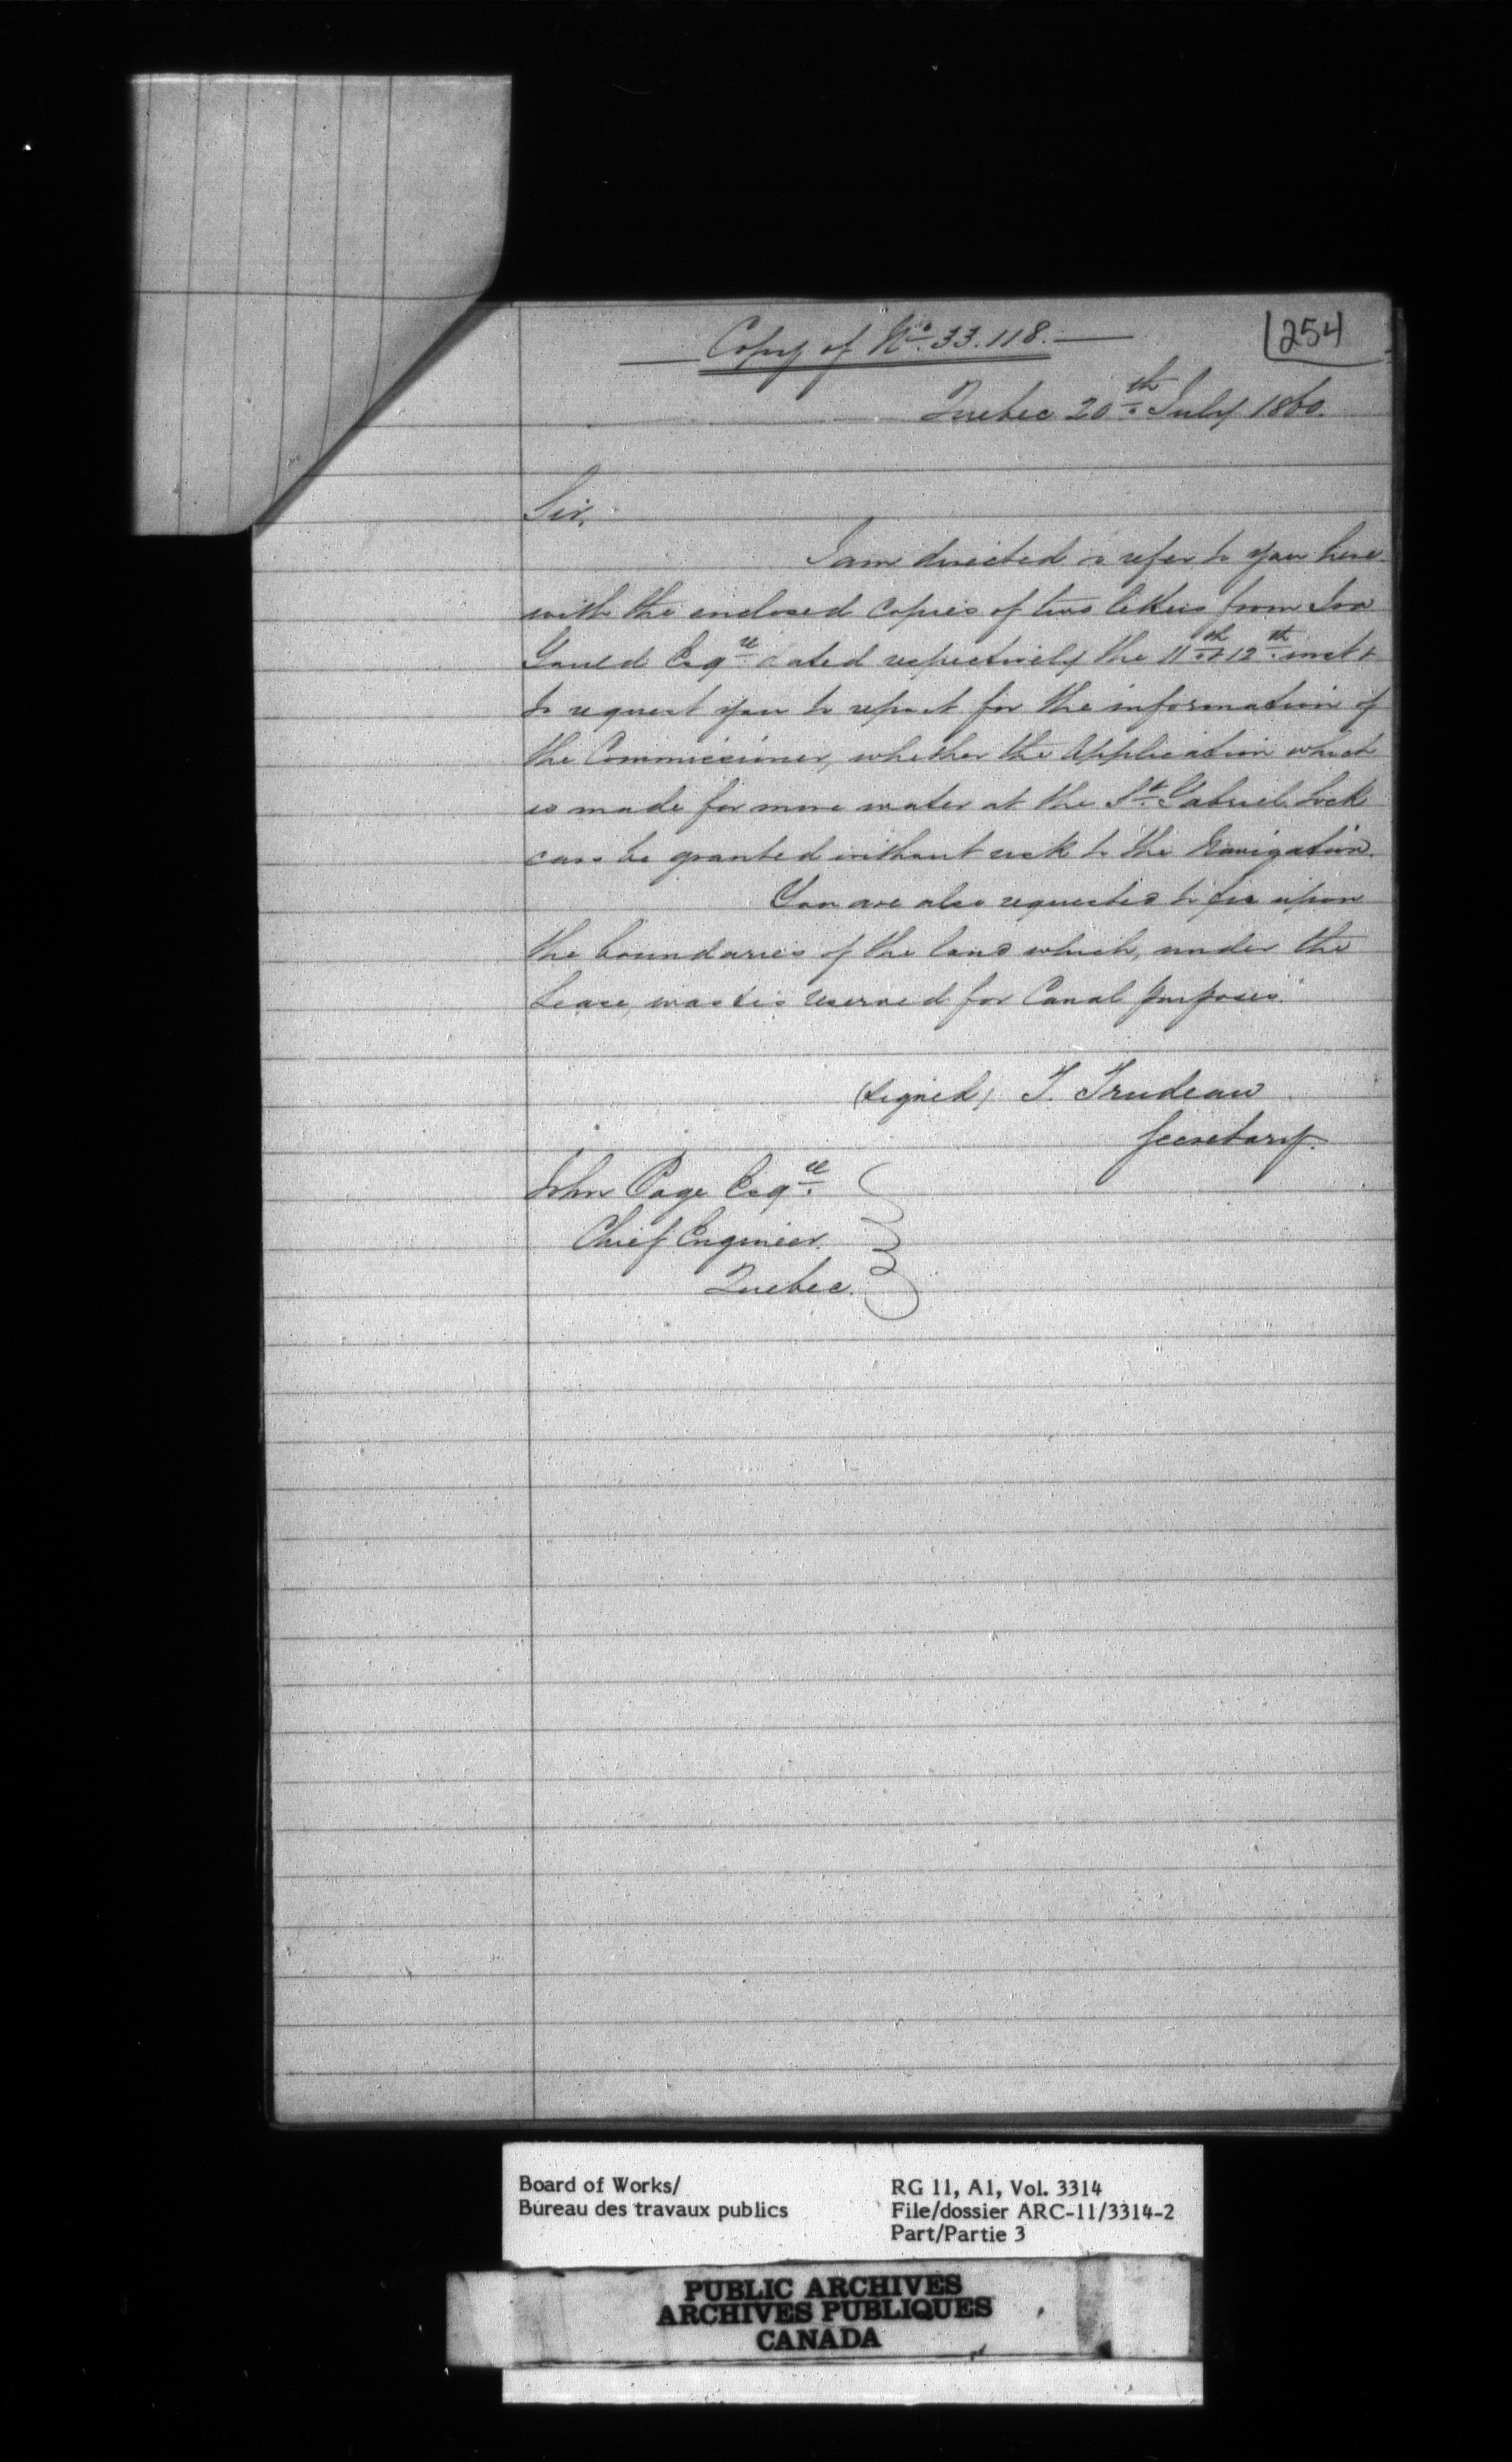 Copy of No. 33.118.
254
Quebec 20th July 1860.
Sir,
I am directed to refer to you here
with the enclosed Copies of two letters from Ira
Gould Esqre dated respectively the 11th & 12th inst &
to request you to report for the information of
the Commissioner, whether the Application which
is made for more water at the St. Gabriel Lock
can be granted without risk to the Navigation.
You are also requested to fix upon
the boundaries of the land which, under the
Lease, was & is reserved for Canal purposes."
(signed) T. Trudeau
Secretary.
John Page Esqre
Chief Engineer.
Quebec.
Board of Works/
Bureau des travaux publics
RG 11, A1, Vol. 3314
File/dossier ARC-11/3314-2
Part/Partie 3
PUBLIC ARCHIVES
ARCHIVES PUBLIQUES
CANADA